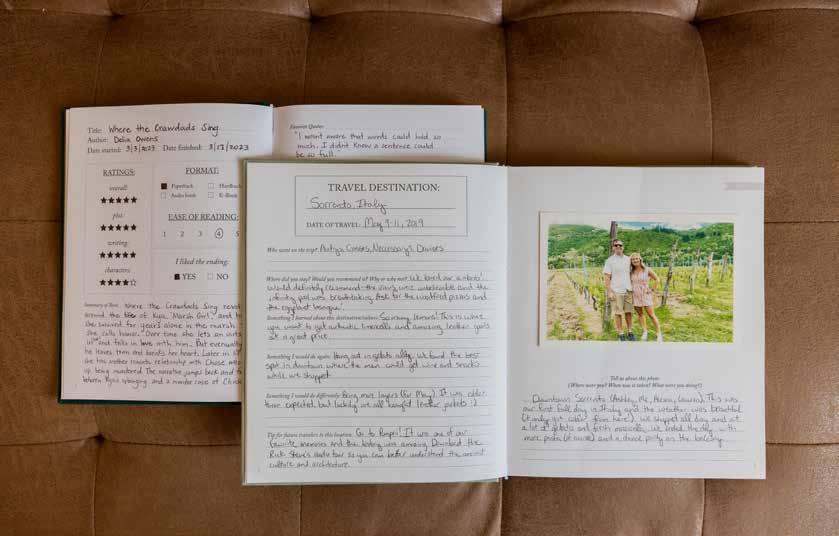 Title: Where the Crawdads Sing
Author: Delia Owens
Date started: 3/3/2023 Date finished: 3/17/2023
RATINGS:
overall
★★★★★
plot
★★★★★
writing
★★★★★
characters
★★★★☆
FORMAT:
Paperback Hardback
Audio book E-Book
EASE OF READING:
1 2 3 4 5
I liked the ending:
YES NO
Summary of Book: Where the Crawdads Sing
around the life of Kya, "Marsh Girl", and
she survived for years alone in the marsh
she calls home. Over time she lets an
in and falls in love with him. But eventually
he leaves town and breaks her heart. Later in
she has another romantic relationship with Chase
up being murdered. The narrative jumps back and
between Kya's upbringing, and a murder case of Chase
Favorite Quotes:
"I wasn't aware that words could hold so
much. I didn't know a sentence could
be so full.
TRAVEL DESTINATION:
Sorrento, Italy
DATE OF TRAVEL: May 9-11, 2019
Who went on the trip?
Where did you stay? Would you recommend it? Why or why not? We loved our
Would definitely recommend - the views were unbelievable and the
infinity pool was breathtaking. Ask for the woodfired pizzas and
the eggplant
Something I learned about this destination/culture: Sorrento lemons! This is where
you want to get authentic limoncello and amazing leather goods
at a great price.
Something I would do again: Hang out in gelato alley. We found the best
spot in downtown where the men could get wine and snacks
while we shopped.
Something I would do differently: Bring more layers (for May). It was colder
than expected, but luckily we all bought leather jackets :)
Tip for future travelers to this location: Go to Pompeii! It was one of our
favorite memories and the history was amazing. Download the
Rick Steve's audio tour so you can better understand the ancient
culture and architecture.
Tell us about this photo:
(Where were you? When was it taken? What were you doing?)
Downtown Sorrento (Ashley, Me, This was
our first full day in Italy and the weather was beautiful
(it only got colder from here). We shopped all day and ate
a lot of gelato and fresh We ended the day with
more pasta (of course) and a dance party on the balcony.